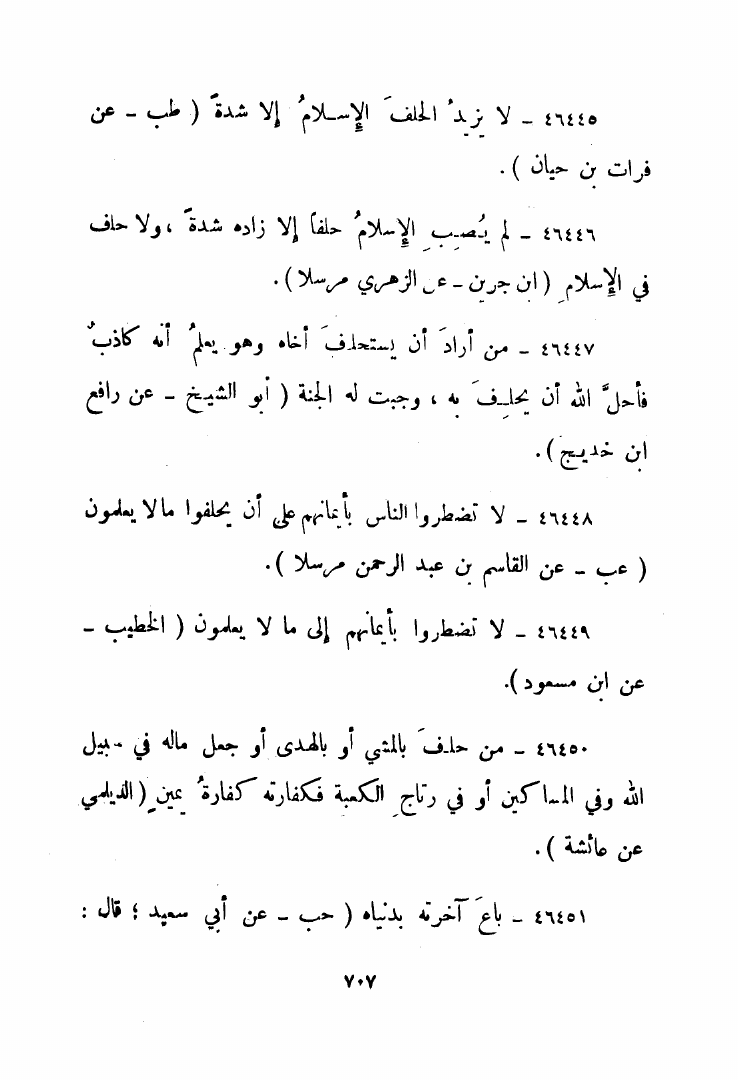 ٤٦٤٤٥ ـ لا يزيدُ الحلفَ الإِسلامُ إلا شدةً ( طب ـ عن
فرات بن حيان ) .
٤٦٤٤٦ ـ لم يُصِبِ الإِسلامُ حلفاً إلا زاده شدةً ، ولا حلف
في الإِسلامِ ( ابن جرير ـ عن الزهري مرسلا ) .
٤٦٤٤٧ ـ من أرادَ أن يستحلفَ أخاه وهو يعلمُ أنه كاذبٌ
فأحلَّ الله أن يحلِفَ به ، وجبت له الجنة ( أبو الشيخ ـ عن رافع
ابن خديج ) .
٤٦٤٤٨ ـ لا تضطروا الناس بأيمانهم على أن يحلفوا ما لا يعلمون
( عب ـ عن القاسم بن عبد الرحمن مرسلا ) .
٤٦٤٤٩ ـ لا تضطروا بأيمانهم إلى ما لا يعلمون ( الخطيب ـ
عن ابن مسعود ) .
٤٦٤٥٠ ـ من حلفَ بالمشي أو بالهدى أو جعل ماله في سبيل
الله وفي المساكين أو في رتاجِ الكعبة فكفارته كفارةُ يمينٍ ( الديلمي
عن عائشة ) .
٤٦٤٥١ ـ باعَ آخرته بدنياه ( حب ـ عن أبي سعيد ؛ قال :
٧٠٧